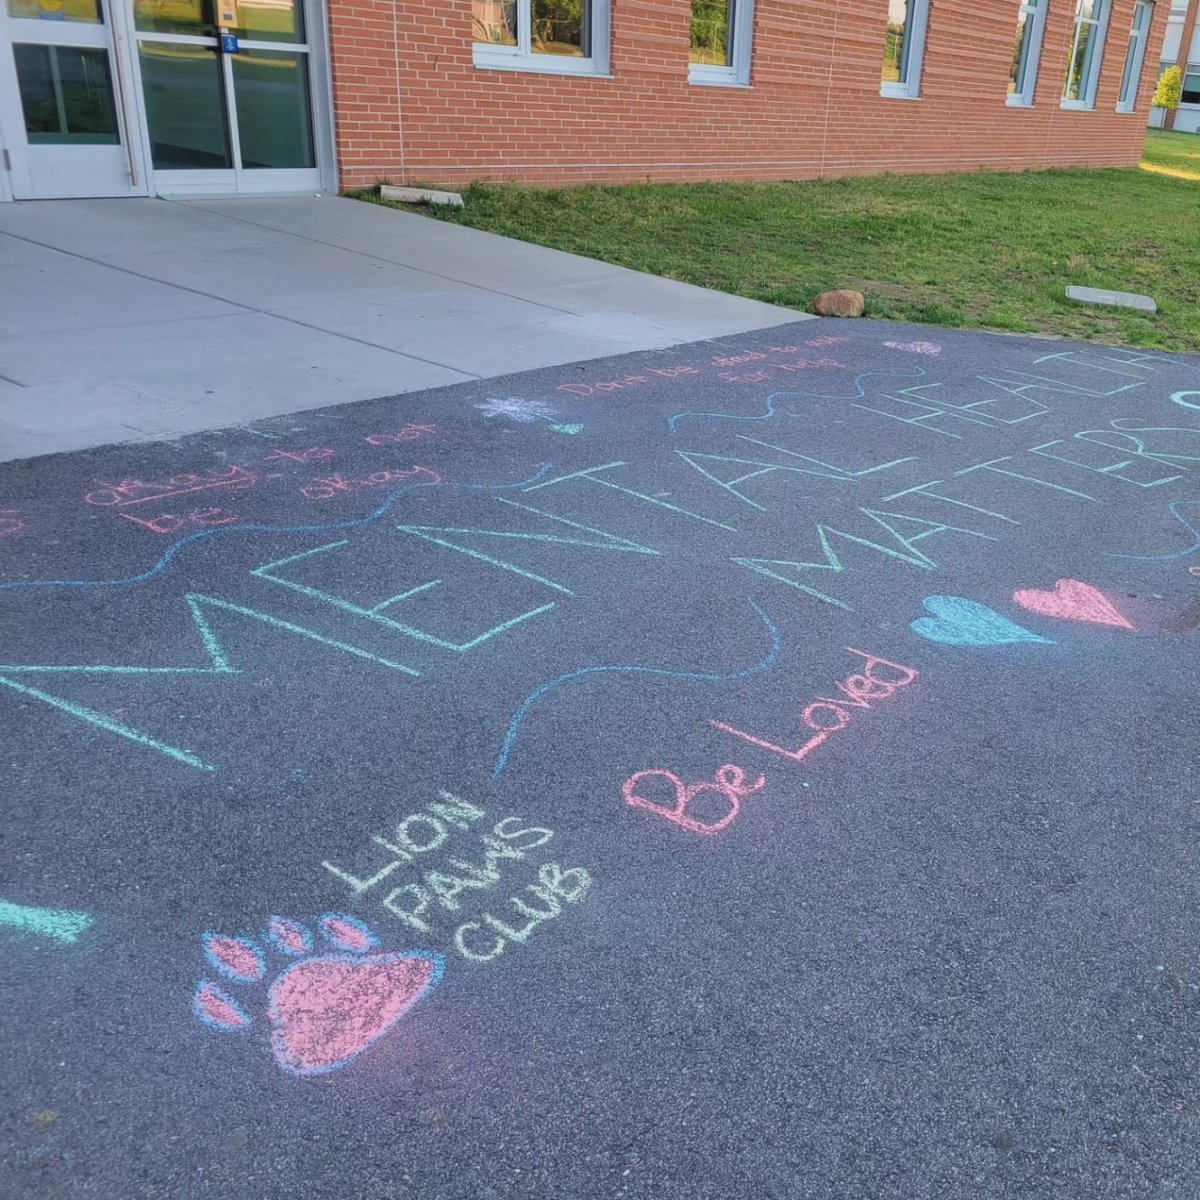 Dont be afraid to ask
for help
okay to not
be okay
MENTAL HEALTH
MATTERS
Be Loved
LION
PAWS
CLUB